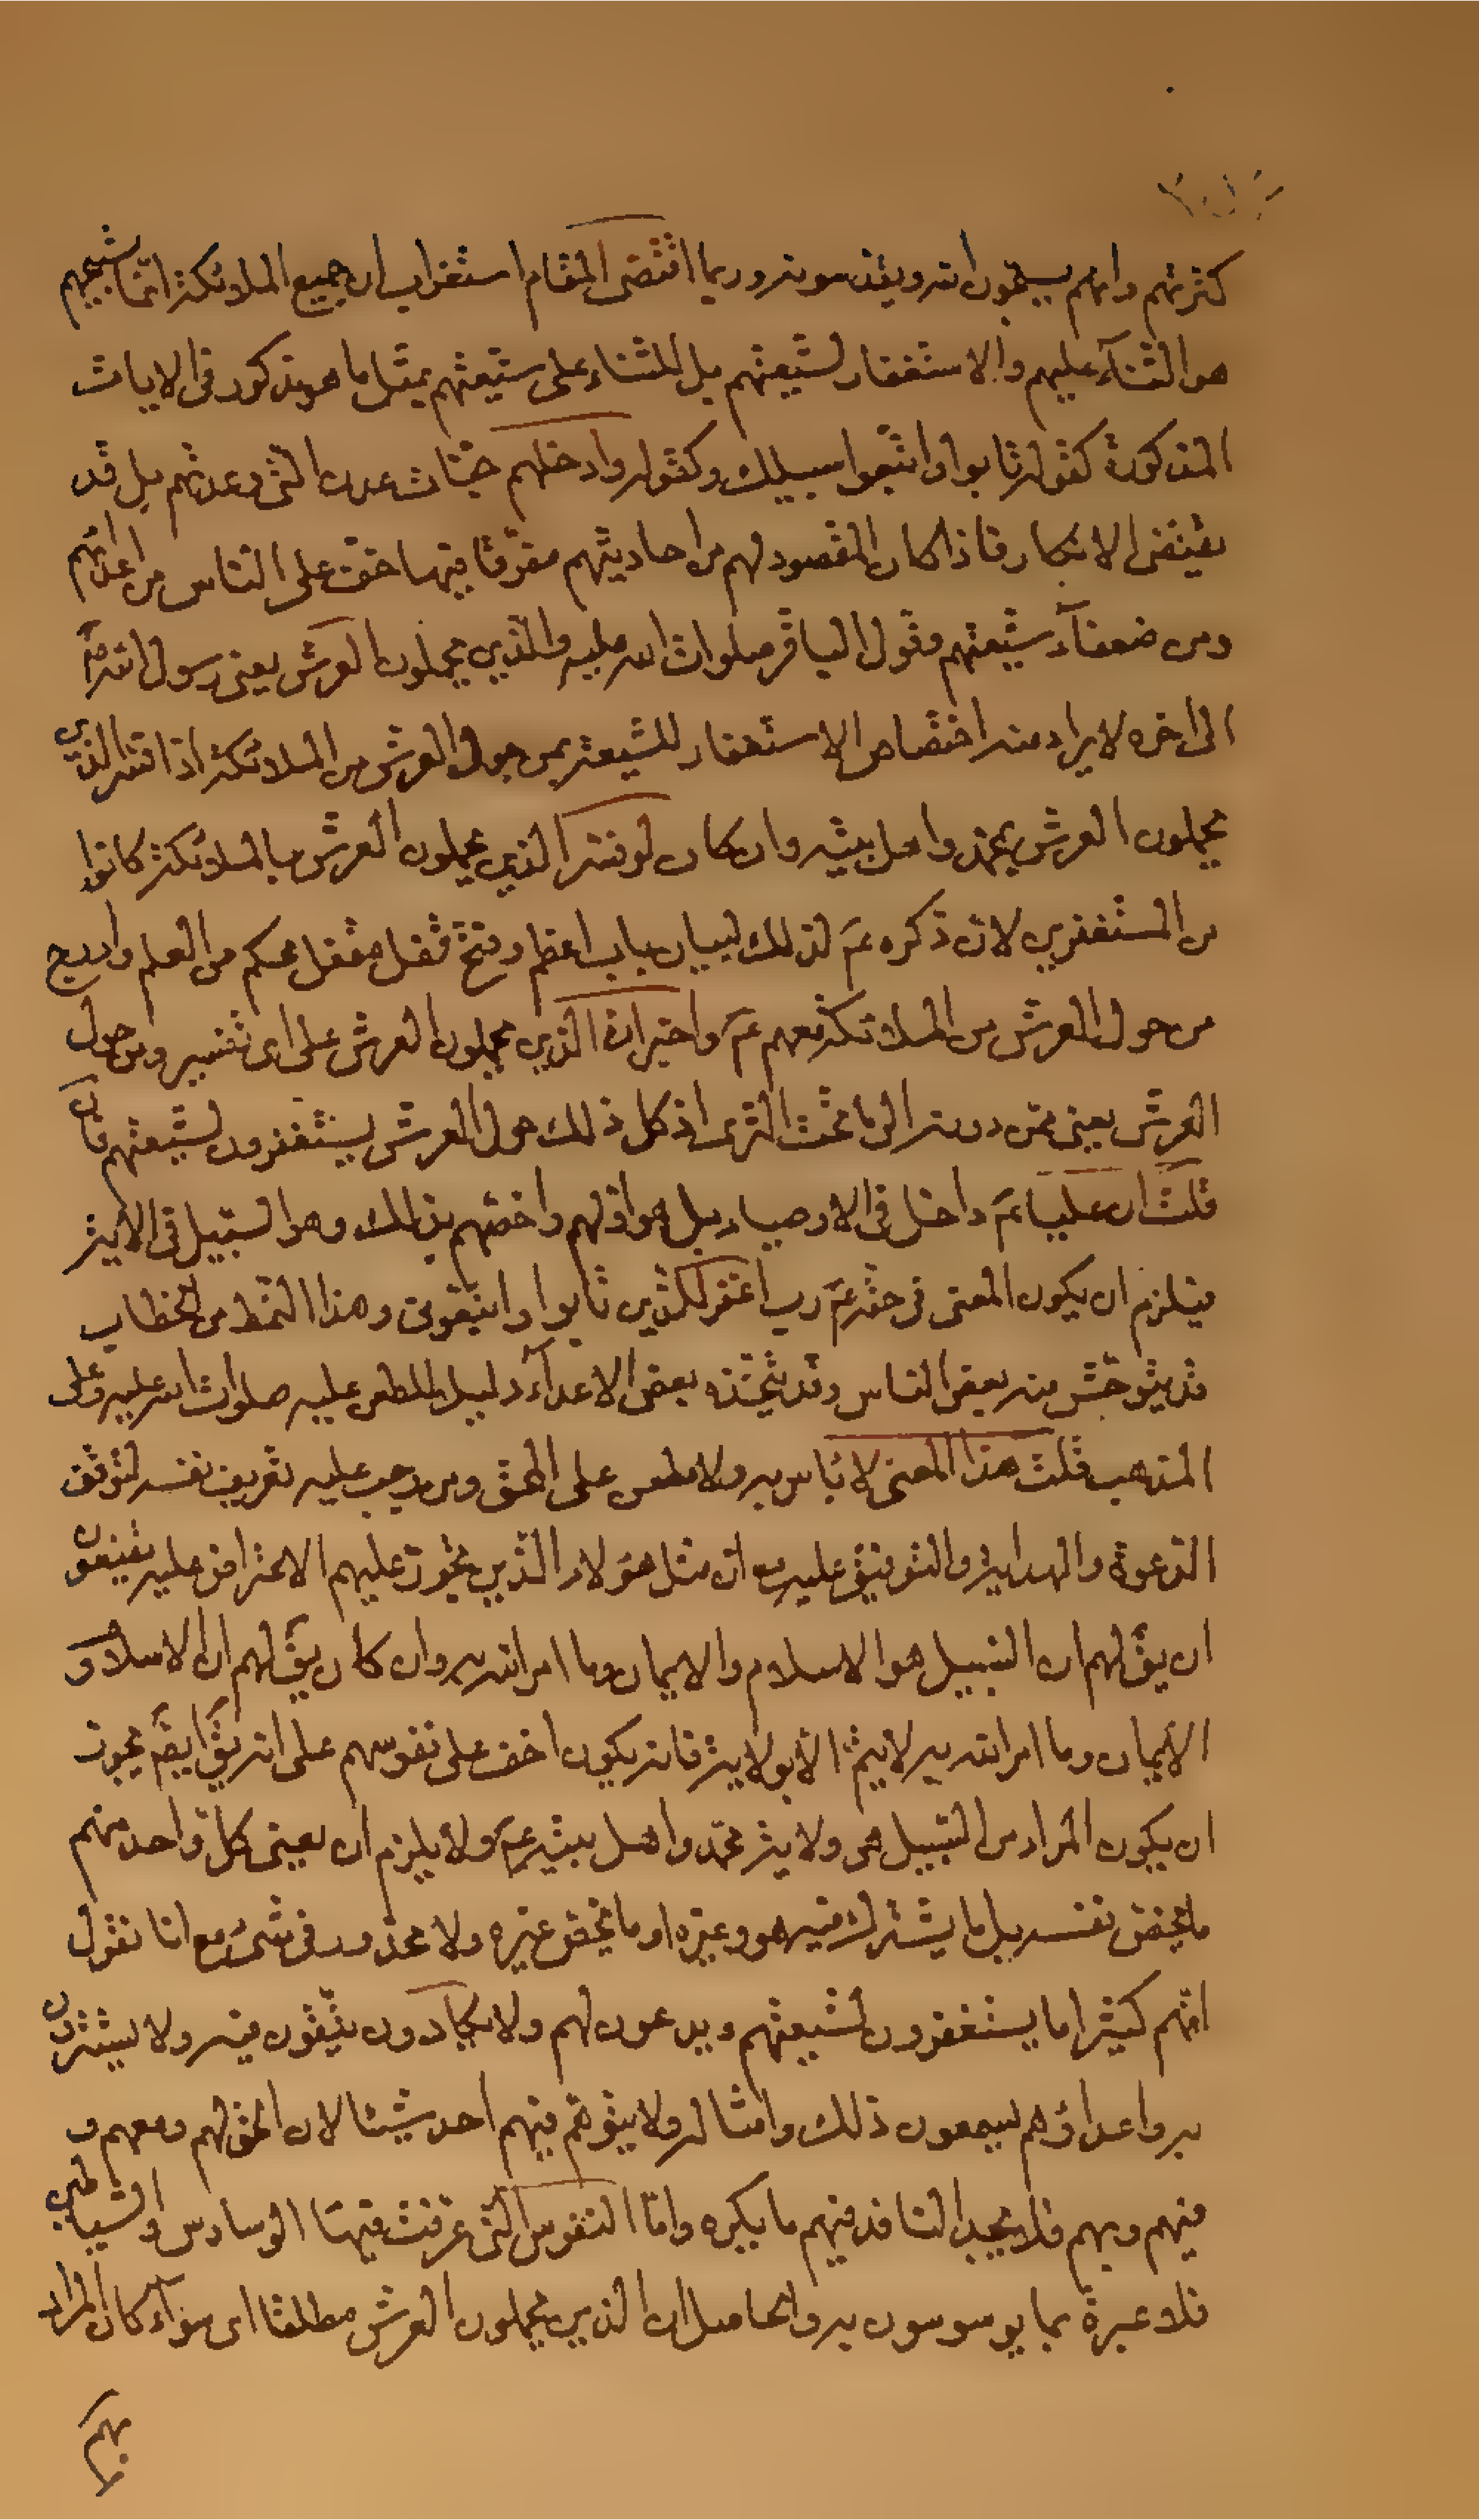 كثرتهم وانهم يسبحون الله ويقدسونه وربما اقتضى المقام استغراب ان جميع الملائكة انما تسبيحهم
هو الثنآء عليهم والاستغفار لشيعتهم بل للثناء على شيعتهم بمثل ما هو مذكور فى الايات
المذكورة كقوله تابوا واتبعوا سبيلك وكقوله وادخلهم جنات عدن التى وعدتهم بل قد
يقتضى الانكار فاذا كان المقصود لهم من احاديثهم مفرقا فيها خف على الناس من اعدائهم
ومن ضعفآء شيعتهم وقول الباقر صلوات الله عليه والذين يحملون العرش يعنى رسول الله ص
الى اخره لا يراد منه اختصاص الاستغفار للشيعة بمن حول العرش من الملائكة اذا فسر الذين
يحملون العرش بمحمد واهل بيته وان كان لو فسر الذين يحملون العرش بالملائكة كانوا
من المستغفرين لان ذكره عم لذلك لبيان باب اعظم وفتح قفل مقفل محكم من العلم وادرج
من حول العرش من الملائكة معهم عم واخبر ان الذين يحملون العرش على اى تفسير ومن حول
العرش يعنى ممن دونه الى ما تحت الثرى اذ كل ذلك حول العرش يستغفرون لشيعتهم فان
قلت ان عليا عم داخل فى الاوصياء بل هو اولهم واخصهم بذلك وهو السبيل فى الاية
فيلزم ان يكون المعنى فى حقه عم رب اغفر للذين تابوا واتبعونى وهذا النمط من الخطاب
قد يتوحش منه بعض الناس وقد يتخذه بعض الاعدآء دليلا للطعن عليه صلوات الله عليه وعلى
المذهب قلت هذا المعنى لا باس به ولا طعن على المحق ومن وجب عليه تعريف نفسه لتوقف
الدعوة والهداية والتوفيق عليه مع ان مثل هؤلاء الذين يجوز عليهم الاعتراض عليه يقنعون
ان يق لهم ان السبيل هو الاسلام والايمان وما امر الله به وان كان يق لهم ان الاسلام و
الايمان وما امر الله به لا يتم الا بولايته فانه يكون اخف على نفوسهم على انه يق ايضا يجوز
ان يكون المراد من السبيل هى ولاية محمد واهل بيته عم ولا يلزم ان يعنى كل واحد منهم
ما يخص نفسه بل ما يشترك فيه هو وغيره او ما يخص غيره ولا محذور فى شىء مع انا نقول
انهم كثيرا ما يستغفرون لشيعتهم ويدعون لهم ولا يكادون يتقون فيه ولا يستترون
به واعداؤهم يسمعون ذلك وامثاله ولا يتوهم فيهم احد شيئا لان الحق لهم ومعهم و
فيهم وبهم فلا يجد الناقد فيهم ما يكره واما النفوس التى غرقت فيها الوساوس والشياطين
فلا عبرة بما يوسوسون به والحاصل ان الذين يحملون العرش مطلقا اى سوآء كان المراد
بهم